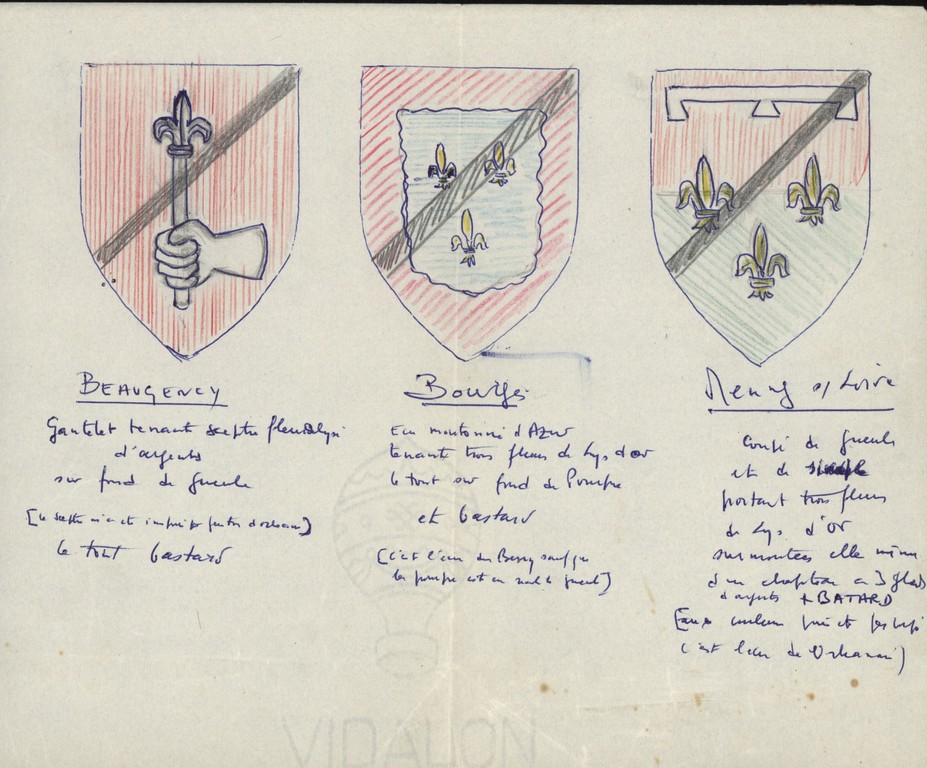 BEAUGENCY
Gantelet tenant sceptre fleurdelysé
d'argent
sur fond de gueule
[le sceptre m'a été inspiré par d'orléans]
le tout bastard
Bourges
Ecu moutonné d'AZUR
tenant trois fleurs de Lys d'or
le tout sur fond de Pourpre
et bastard
(c'est l'écu du Berry sauf que
le pourpre est en réalité gueule)
Meung s/ Loire
coupé de gueule
et de
portant trois fleurs
de Lys d'or
surmontées elle même
d'un
d'argent + BATARD
couleur
(c'est l'écu de Orléanais)
VIDALON